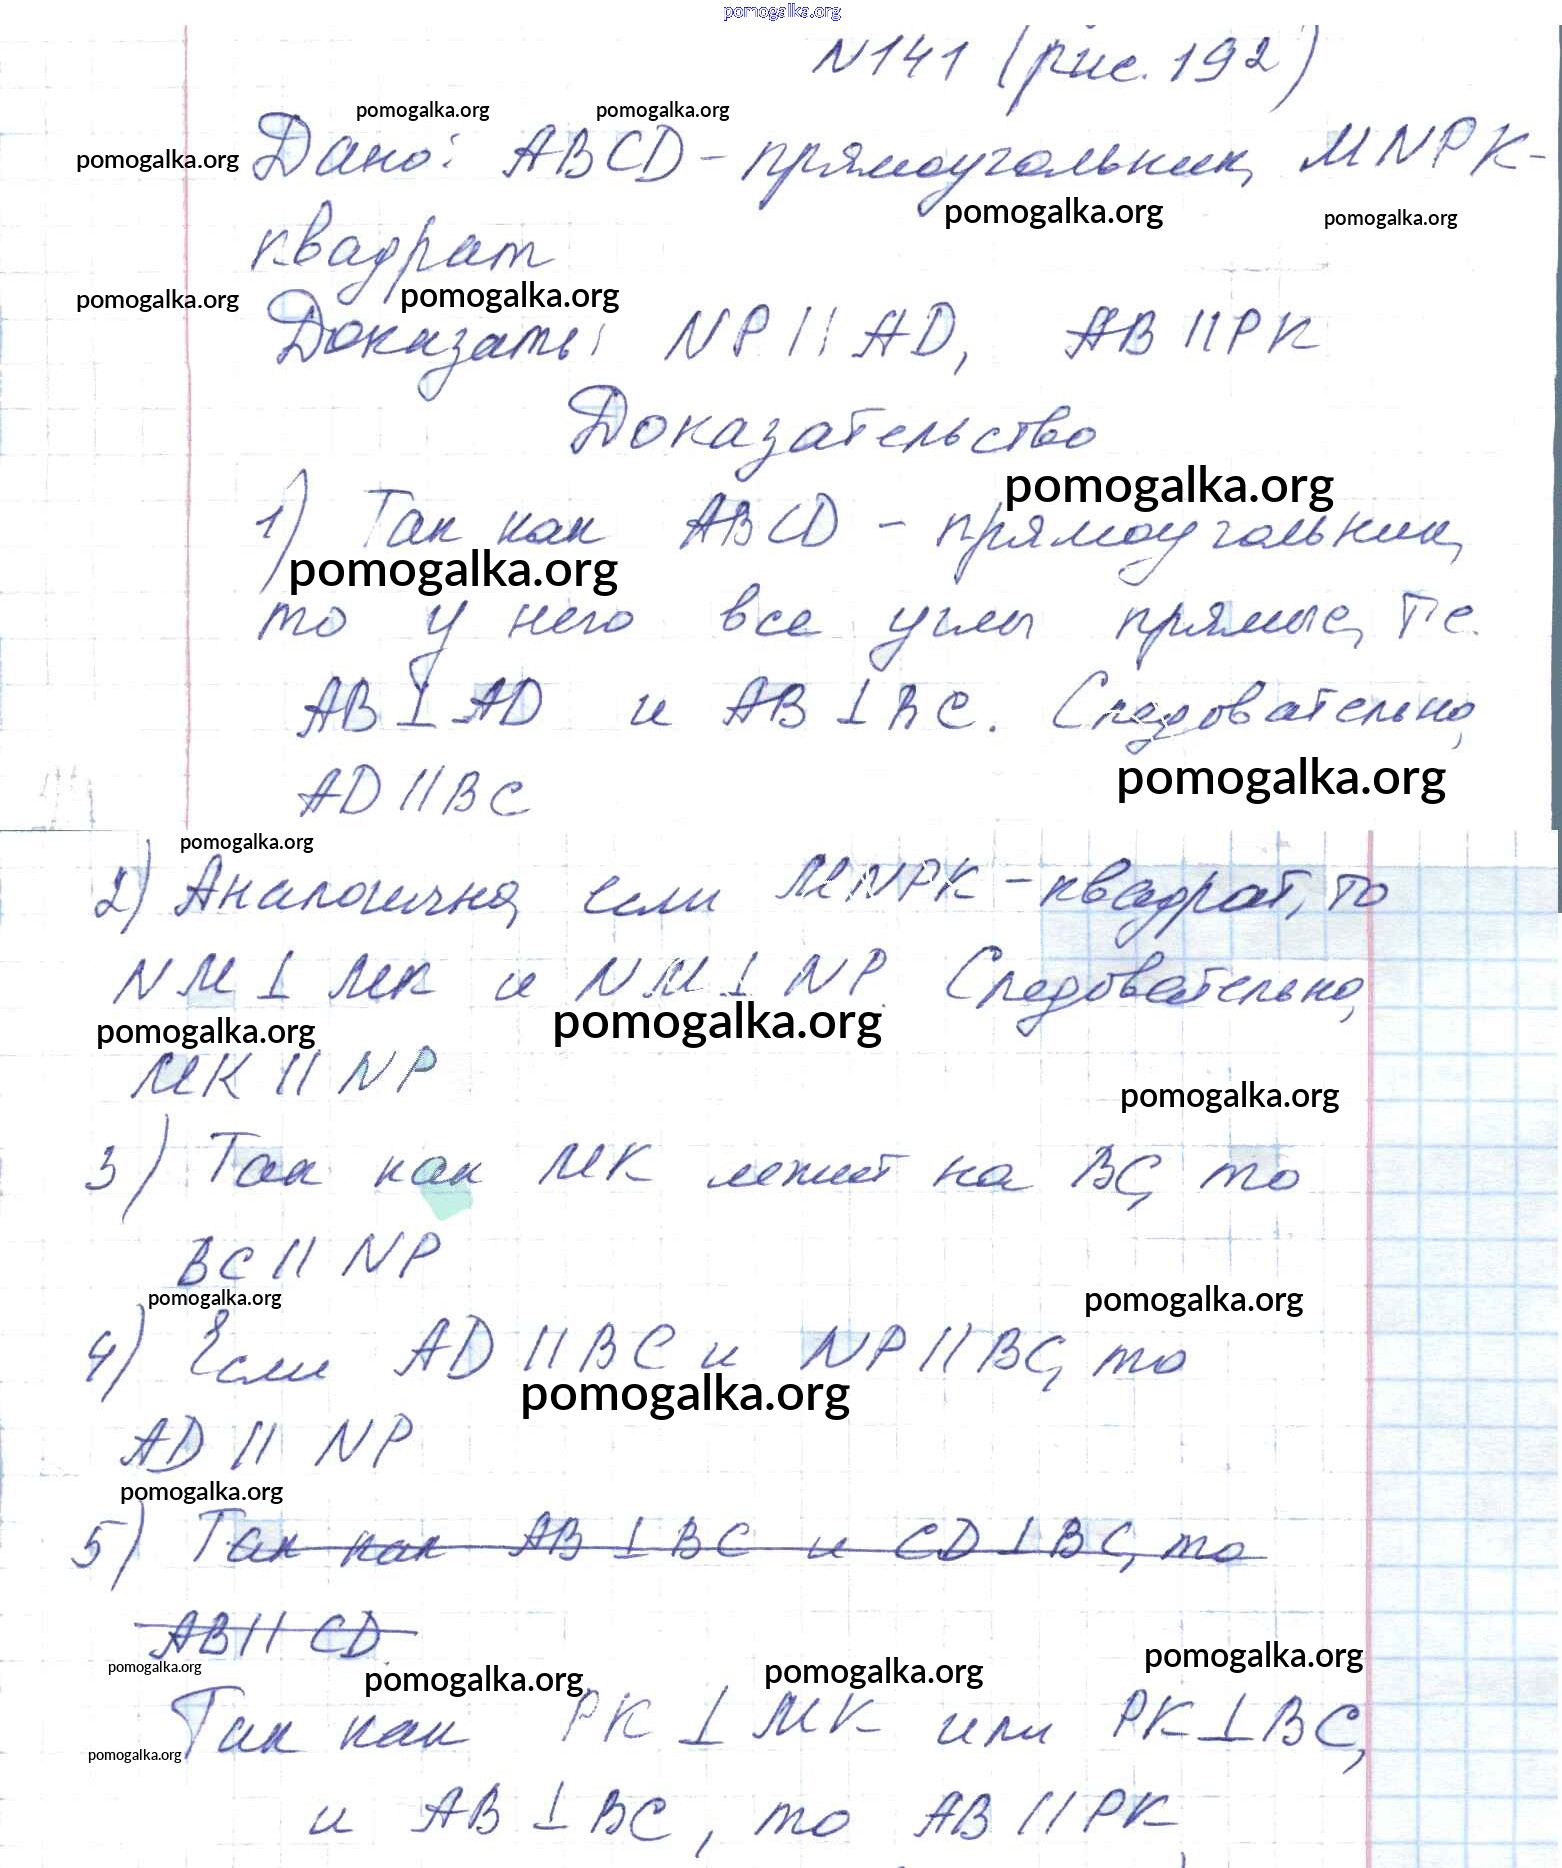 pomogalka.org
N141 (рис. 192)
pomogalka.org pomogalka.org
pomogalka.org Дано: ABCD - прямоугольник, MNPK -
pomogalka.org pomogalka.org
квадрат
pomogalka.org pomogalka.org
Доказать: NP || AD, AB || PK
Доказательство
pomogalka.org
1) Так как ABCD - прямоугольник,
pomogalka.org
то у него все углы прямые, т.е.
AB ⊥ AD и AB ⊥ BC. Следовательно,
pomogalka.org
AD || BC
pomogalka.org
2) Аналогично, если MNPK - квадрат, то
NM ⊥ MK и NM ⊥ NP. Следовательно,
pomogalka.org pomogalka.org
MK || NP
pomogalka.org
3) Так как MK лежит на BC, то
BC || NP
pomogalka.org pomogalka.org
4) Если AD || BC и NP || BC, то
pomogalka.org
AD || NP
pomogalka.org
5) Так как AB ⊥ BC и CD ⊥ BC, то
AB || CD
pomogalka.org pomogalka.org pomogalka.org pomogalka.org
Так как PK ⊥ MK или PK ⊥ BC,
pomogalka.org
и AB ⊥ BC, то AB || PK